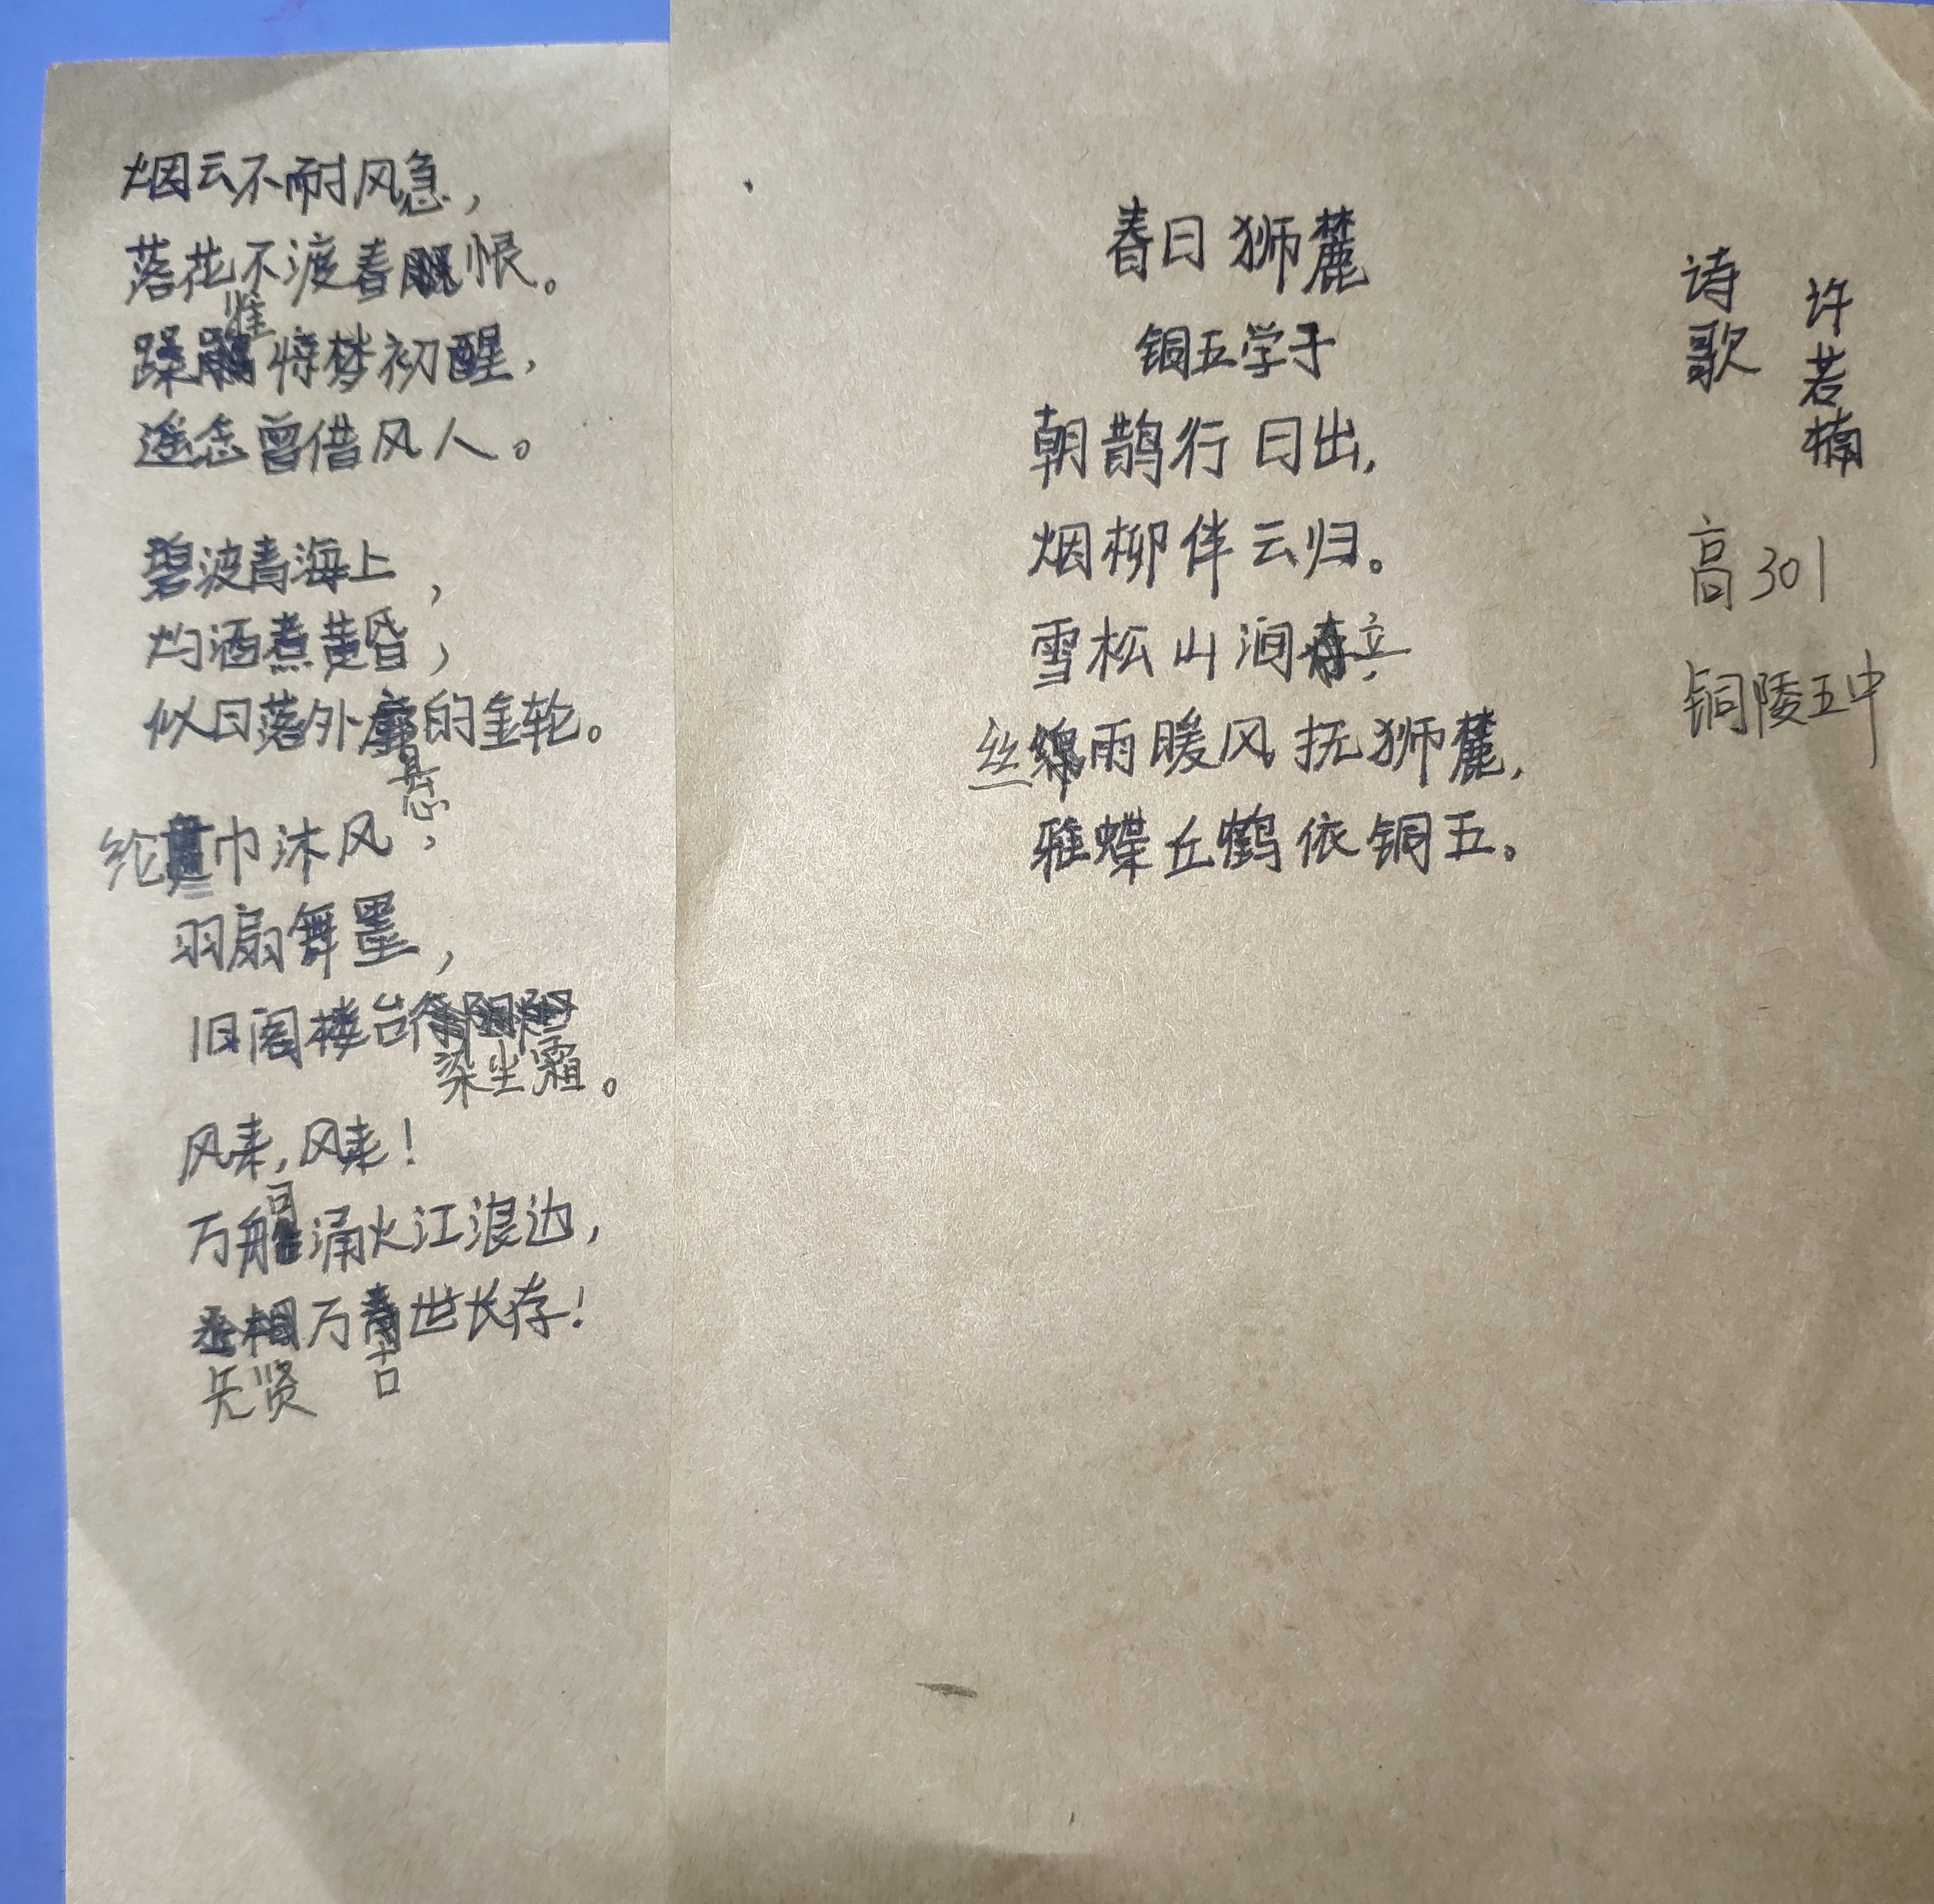 烟云不耐风急，
落花不渡春恨。
蹂惟惊梦初醒，
遥念曾借风人。
碧波青海上，
灼酒煮黄昏，
似日落外悬的金轮。
纶巾沐风，
羽扇舞墨，
旧阁楼台染尘霜。
风来，风来！
万船涌火江浪边，
先贤万古世长存！
春日狮麓
铜五学子
朝鹊行日出，
烟柳伴云归。
雪松山涧立，
丝雨暖风抚狮麓，
雅蝶丘鹤依铜五。
诗歌
许若楠
高301
铜陵五中